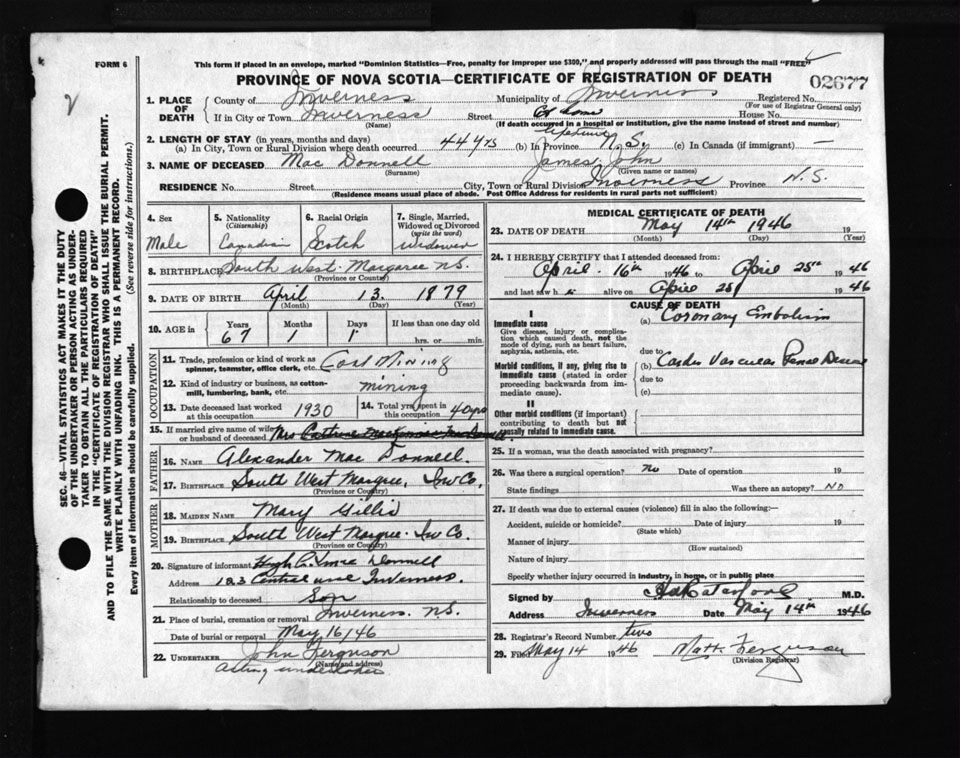 FORM 6
This form if placed in an envelope, marked "Dominion Statistics—Free, penalty for improper use $300," and properly addressed will pass through the mail "FREE"
PROVINCE OF NOVA SCOTIA—CERTIFICATE OF REGISTRATION OF DEATH
02677
SEC. 46—VITAL STATISTICS ACT MAKES IT THE DUTY
OF THE UNDERTAKER OR PERSON ACTING AS UNDER-
TAKER TO OBTAIN ALL THE PARTICULARS REQUIRED
IN THE "CERTIFICATE OF REGISTRATION OF DEATH"
AND TO FILE THE SAME WITH THE DIVISION REGISTRAR WHO SHALL ISSUE THE BURIAL PERMIT.
WRITE PLAINLY WITH UNFADING INK. THIS IS A PERMANENT RECORD.
Every item of information should be carefully supplied. (See reverse side for instructions.)
1. PLACE OF DEATH
County of Inverness Municipality of Inverness Registered No.
(For use of Registrar General only)
If in City or Town Inverness Street At home House No.
(Name) (If death occurred in a hospital or institution, give the name instead of street and number)
2. LENGTH OF STAY (in years, months and days) lifetime
(a) In City, Town or Rural Division where death occurred 44 yrs (b) In Province N.S. (c) In Canada (if immigrant) —
3. NAME OF DECEASED Mac Donnell James John
(Surname) (Given name or names)
RESIDENCE No. Street City, Town or Rural Division Inverness Province N.S.
(Residence means usual place of abode. Post Office Address for residents in rural parts not sufficient)
4. Sex Male
5. Nationality (Citizenship) Canadian
6. Racial Origin Scotch
7. Single, Married, Widowed or Divorced (write the word) Widower
8. BIRTHPLACE South West Margaree N.S.
(Province or Country)
9. DATE OF BIRTH April 13. 1879
(Month) (Day) (Year)
10. AGE in Years 67 Months 1 Days 1 If less than one day old hrs. or min.
OCCUPATION
11. Trade, profession or kind of work as spinner, teamster, office clerk, etc. Coal Mining
12. Kind of industry or business, as cotton-mill, lumbering, bank, etc. mining
13. Date deceased last worked at this occupation 1930
14. Total yrs. spent in this occupation 40 yrs
15. If married give name of wife or husband of deceased Mrs
FATHER
16. NAME Alexander Mac Donnell.
17. BIRTHPLACE South West Margree, Inv Co.
(Province or Country)
MOTHER
18. MAIDEN NAME Mary Gillis
19. BIRTHPLACE South West Margree. Inv Co.
(Province or Country)
20. Signature of informant Hugh Donnell
Address 123 Central ave Inverness.
Relationship to deceased Son
21. Place of burial, cremation or removal Inverness. N.S.
Date of burial or removal May 16/46
22. UNDERTAKER John Ferguson
(Name and address)
Acting undertaker
MEDICAL CERTIFICATE OF DEATH
23. DATE OF DEATH May 14th 1946
(Month) (Day) (Year)
24. I HEREBY CERTIFY that I attended deceased from:
April. 16th 1946 to April 25th 1946
and last saw h alive on April 25 1946
CAUSE OF DEATH
I
Immediate cause
Give disease, injury or complication which caused death, not the mode of dying, such as heart failure, asphyxia, asthenia, etc.
(a) Coronary Embolism
due to
Morbid conditions, if any, giving rise to immediate cause (stated in order proceeding backwards from immediate cause).
(b) Cardio Vascular Disease
due to
(c)
II
Other morbid conditions (if important) contributing to death but not causally related to immediate cause.
25. If a woman, was the death associated with pregnancy?
26. Was there a surgical operation? No Date of operation 19
State findings Was there an autopsy? NO
27. If death was due to external causes (violence) fill in also the following:—
Accident, suicide or homicide? Date of injury 19
(State which)
Manner of injury
(How sustained)
Nature of injury
Specify whether injury occurred in industry, in home, or in public place
Signed by M.D.
Address Inverness Date May 14th 1946
28. Registrar's Record Number two
29. Filed May 14 1946 Matt. Ferguson
(Division Registrar)